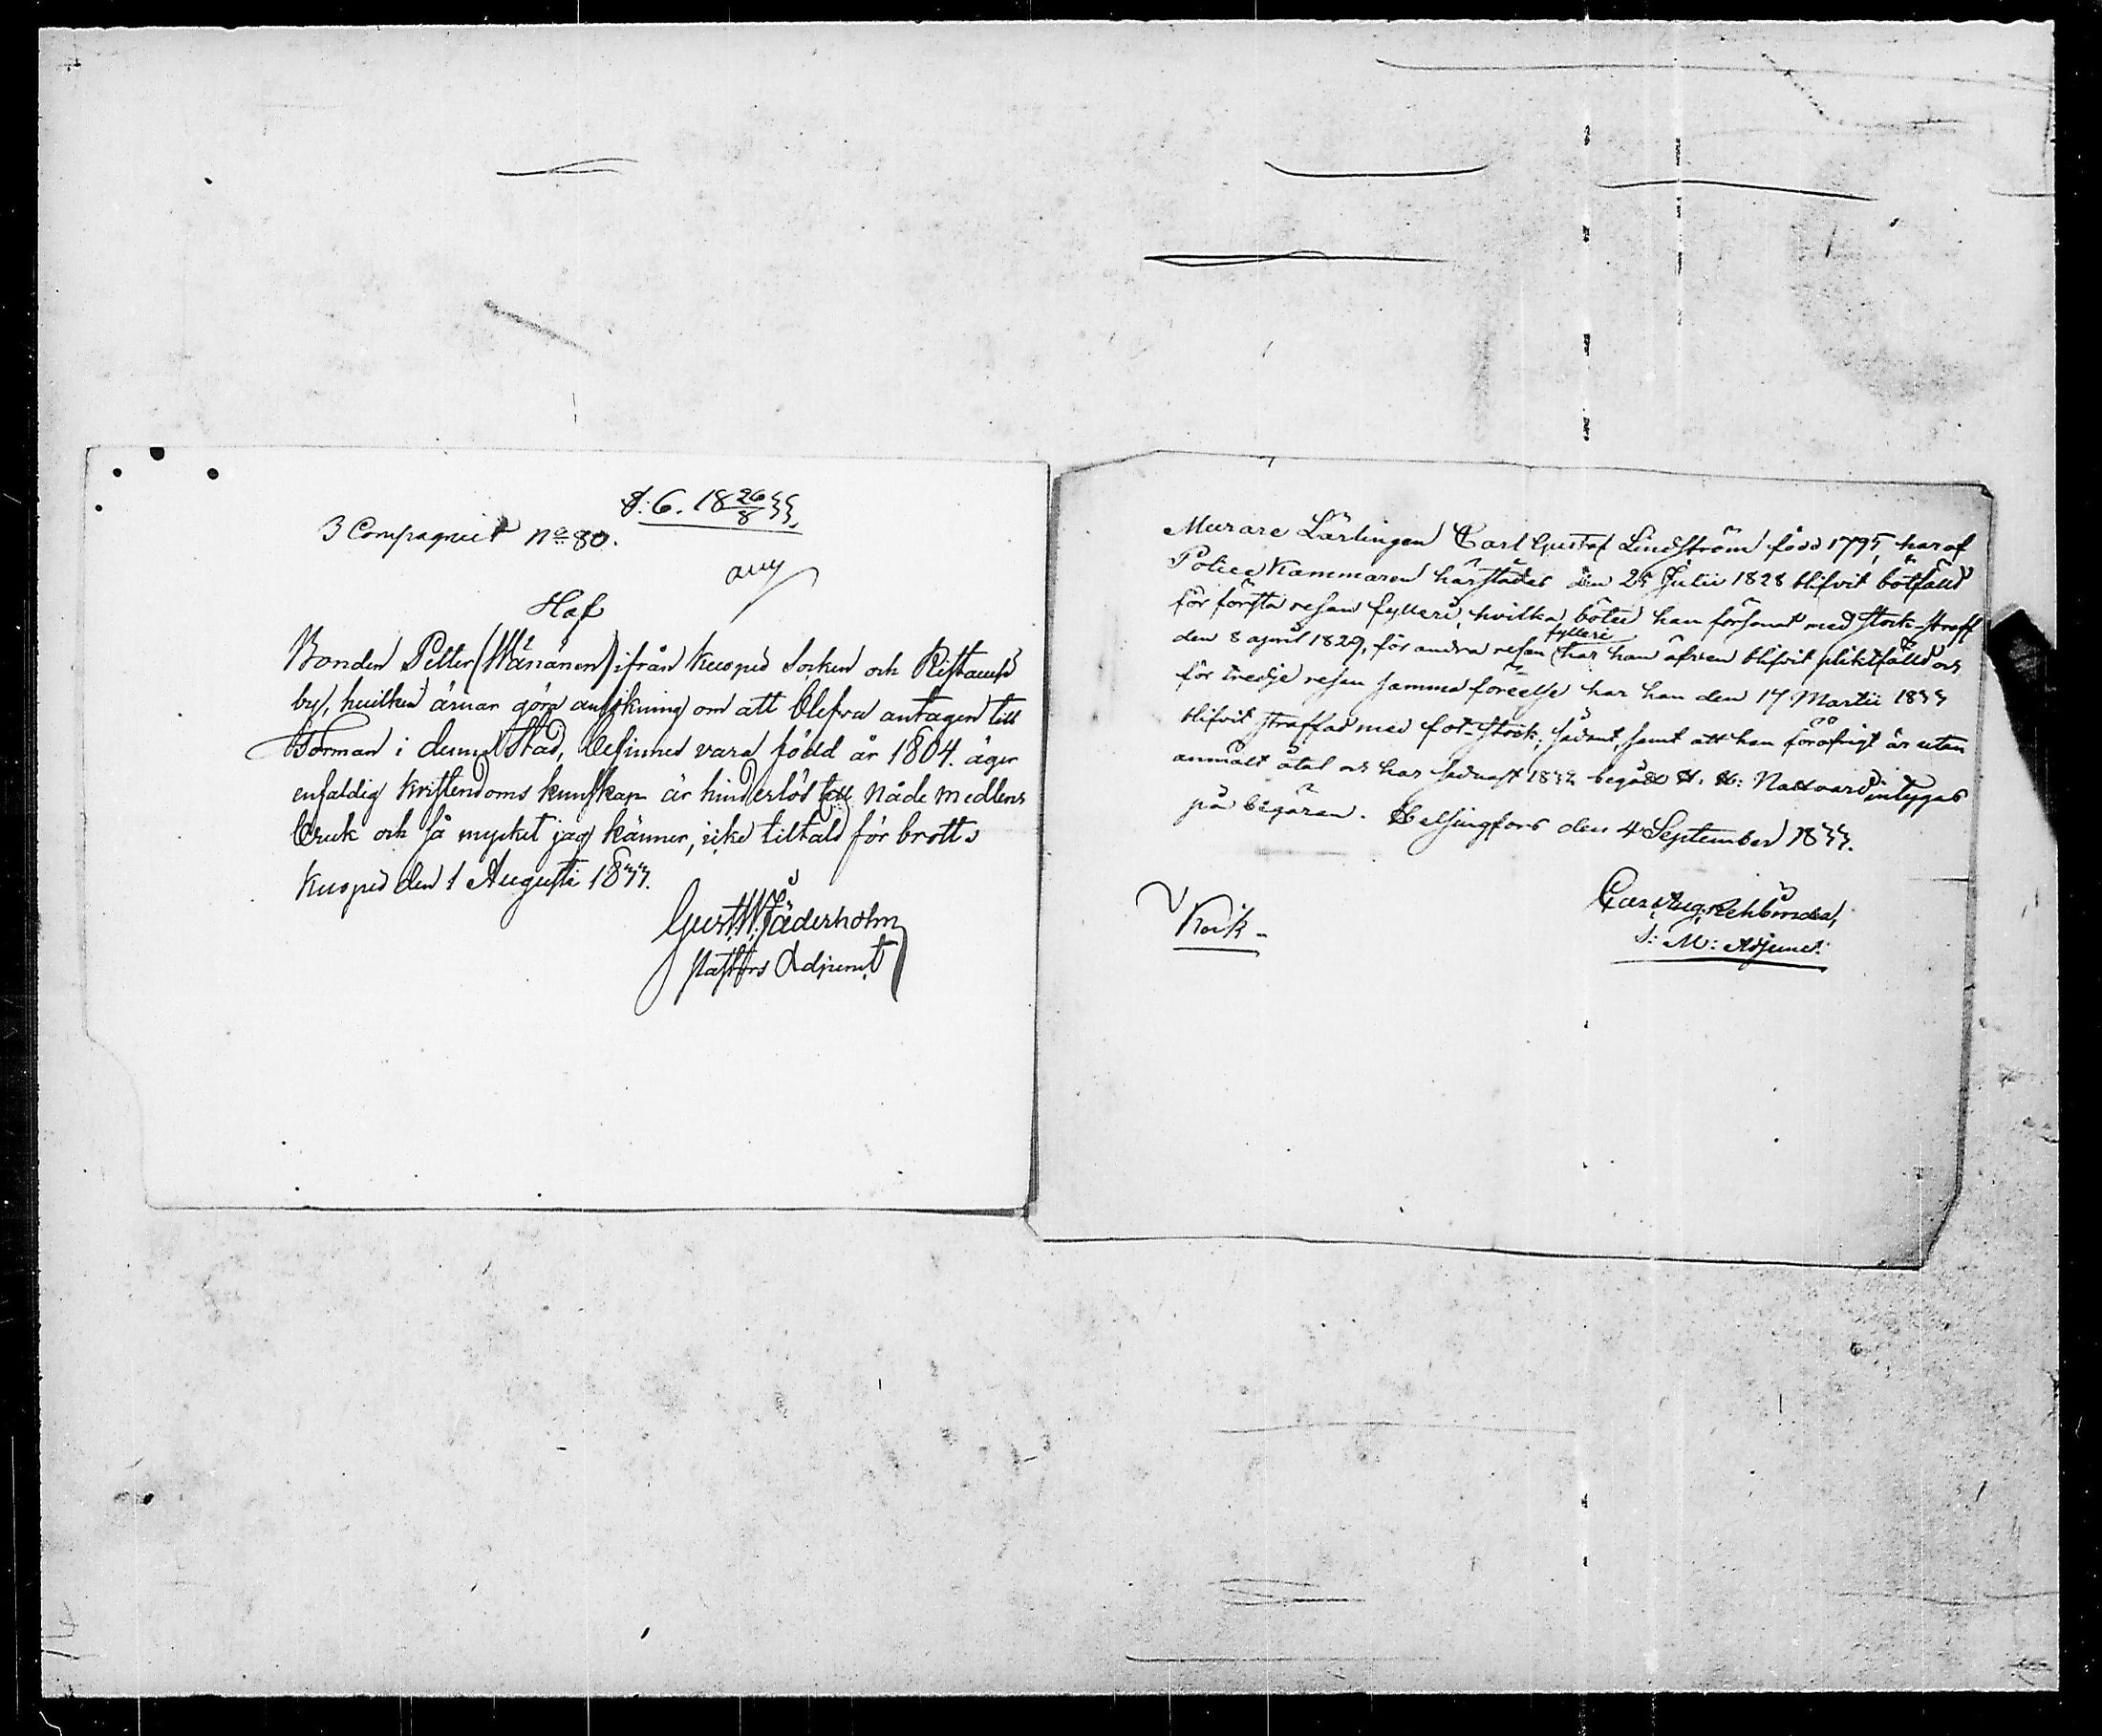 S: 6. 18 26/8 33.
3 Compagniet No 80.
Haf
Bonden Petter (Wänänen) ifrån Kuopio Socken och
by, hvilken ärnar göra ansökning om att blifva antagen till
Forman i denna Stad, befinnes vara född år 1804. äger
enfaldig Kristendoms kunskap är hinderslös till Nåde medlens
bruk och så mycket jag känner, icke tiltald för brott.
Kuopio den 1 Augusti 1833.
Gust. W. Jäderholm
Pastors Adjunct
Murare Lärlingen Carl Gustaf Lindström född 1795, har af
Police Kammaren härstädes den 25 Julii 1828 blifvit bötfälld
för första resan fylleri, hvilka böter han försonat med stock-straff
den 8 april 1829, för andra resan fylleri har han äfven blifvit pliktfälld och
för tredje resan samma föreelse har han den 17 Martii 1833
blifvit straffad med fot-stock; sådant, samt att han föröfrigt är utan
anmält åtal och har sednast 1832 begått H. H: Nattvard intygas
på begäran. Helsingfors den 4 September 1833.
Carl Aug. Rehbinder,
S: M: Adjunct.